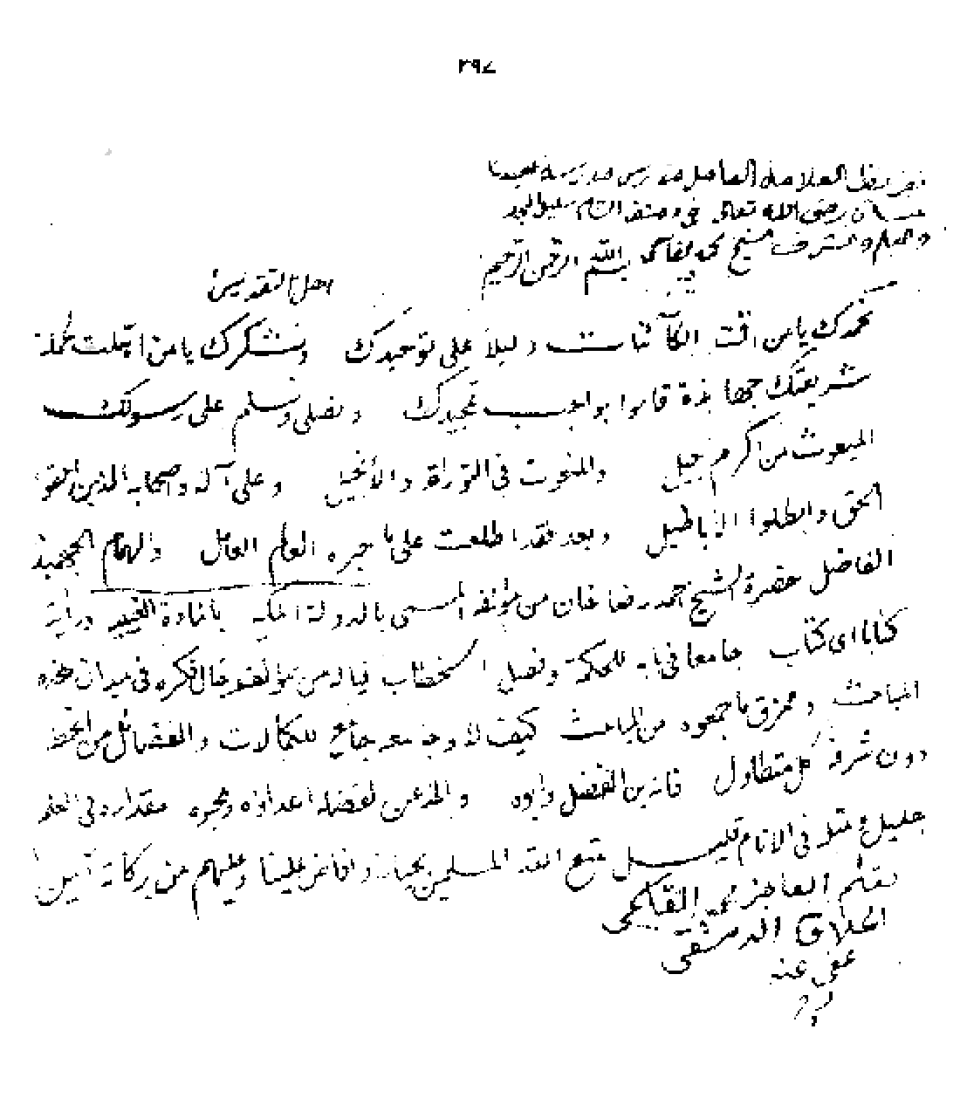 ٢٩٧
العلامة الفاضل مدرس مدرسة
رضى الله تعالى فى الشام
والشرف الشيخ محمد القاسمى بسم الله الرحمن الرحيم
اهل التقديس
نحمدك يا من اقمت الكآئنات دليلا على توحيدك ونشكرك يا من
شريعتك جهابذة قاموا بواجب تمجيدك ونصلى ونسلم على رسولك
المبعوث من اكرم جيل والمنعوت فى التوراة والأنجيل وعلى آله وصحابه الذين
الحق وابطلوا الاباطيل وبعد فقد اطلعت على ما حبره العالم العامل والهمام الجهبذ
الفاضل حضرة الشيخ احمد رضا خان من مؤلفه المسمى بالدولة المكيه بالمادة الغيبيه
كتابا اى كتاب جامعا فى بابه للحكمة وفصل الخطاب فياله من مؤلف جال فكره فى ميدان هذه
المباحث ومزق ما من المباحث كيف لا وجامعه جامع للكمالات والفضائل من انحط
دون شرفه كل متطاول الفضل وابوه والمذعن لفضله اعداؤه ومحبوه مقداره فى العلم
جليل ومثله فى الانام قليل متع الله المسلمين بحياته وافاض علينا وعليهم من بركاته آمين
بقلم العاجز محمد القاسمى
الحلاق الدمشقى
عفى عنه